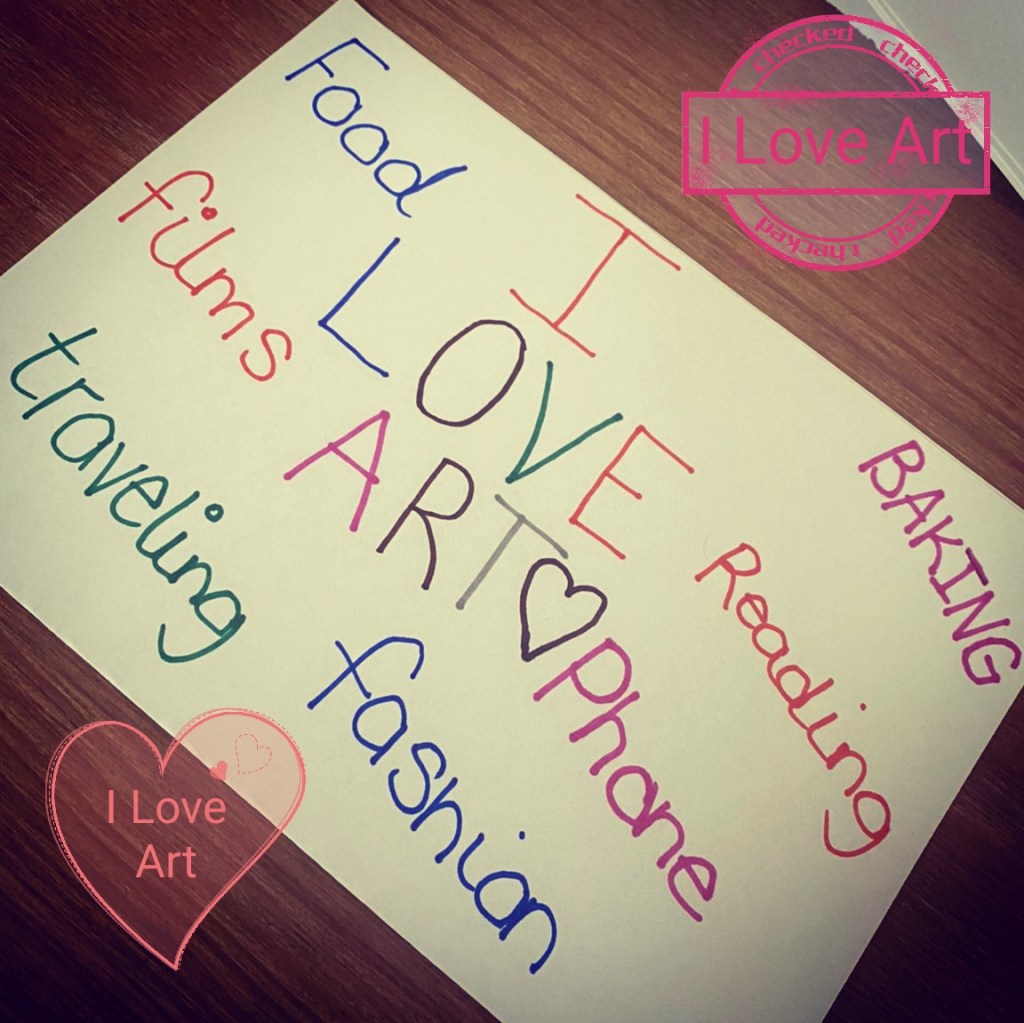 Food
films
traveling
I
LOVE
ART
fashion
Phone
Reading
BAKING
checked check
I Love Art
checked checked
I Love
Art